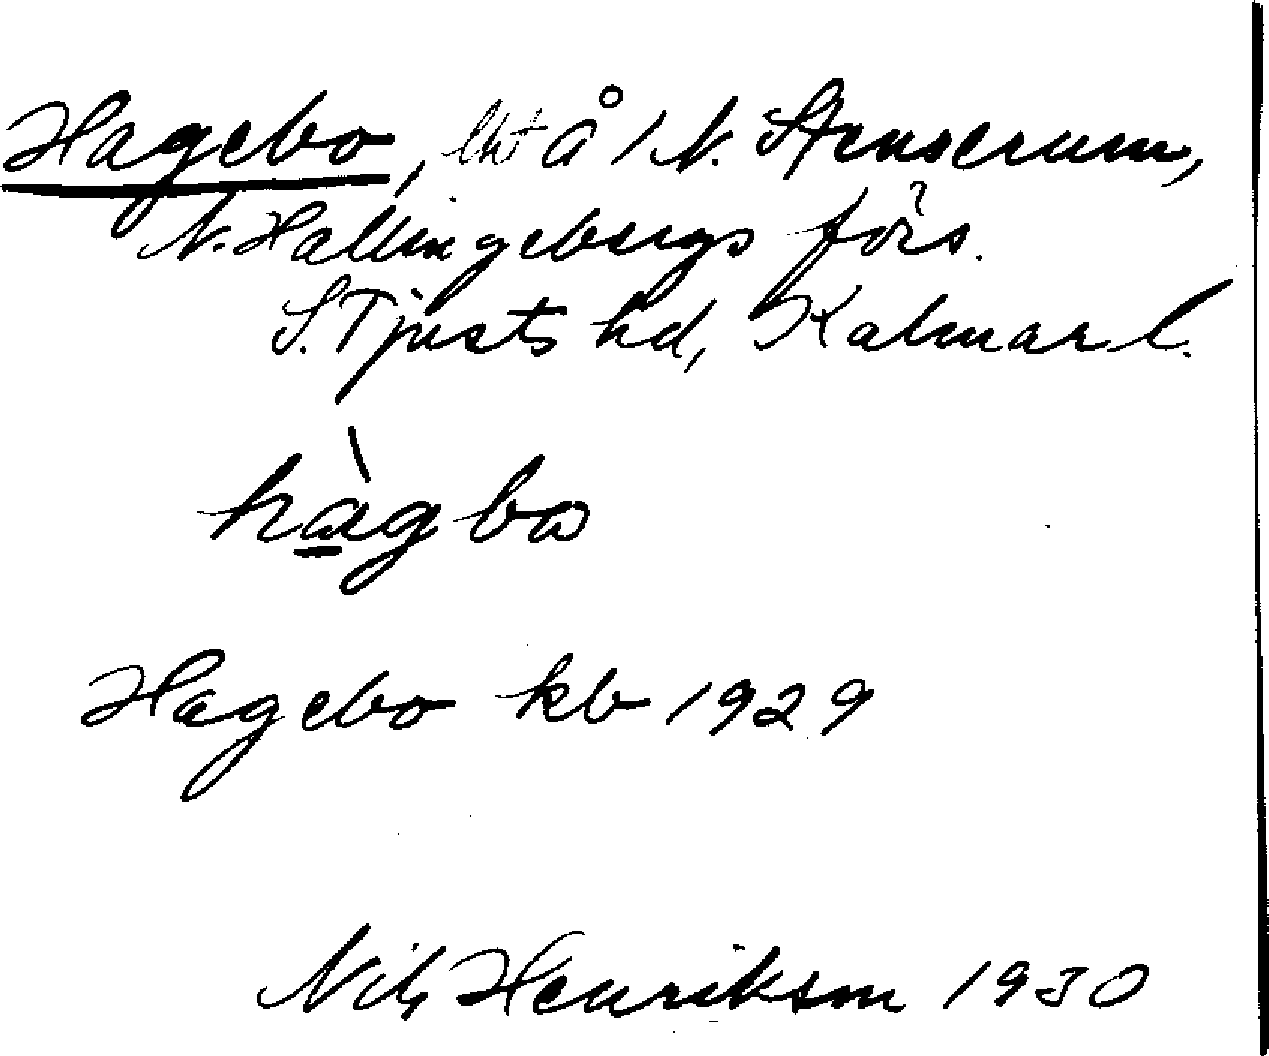 Hagebo, lht å 1 N. Stenserum,
N. Hallingebergs förs.
S. Tjusts hd, Kalmar l.
hàgbo
Hagebo kb 1929
Nils Henriksson 1930